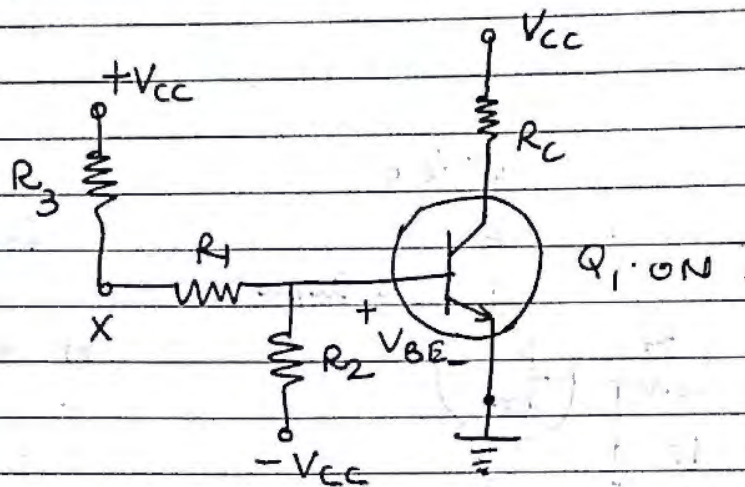 VCC
+VCC
RC
R3
R1
Q1 ON
X
+
VBE
-
R2
-VCC